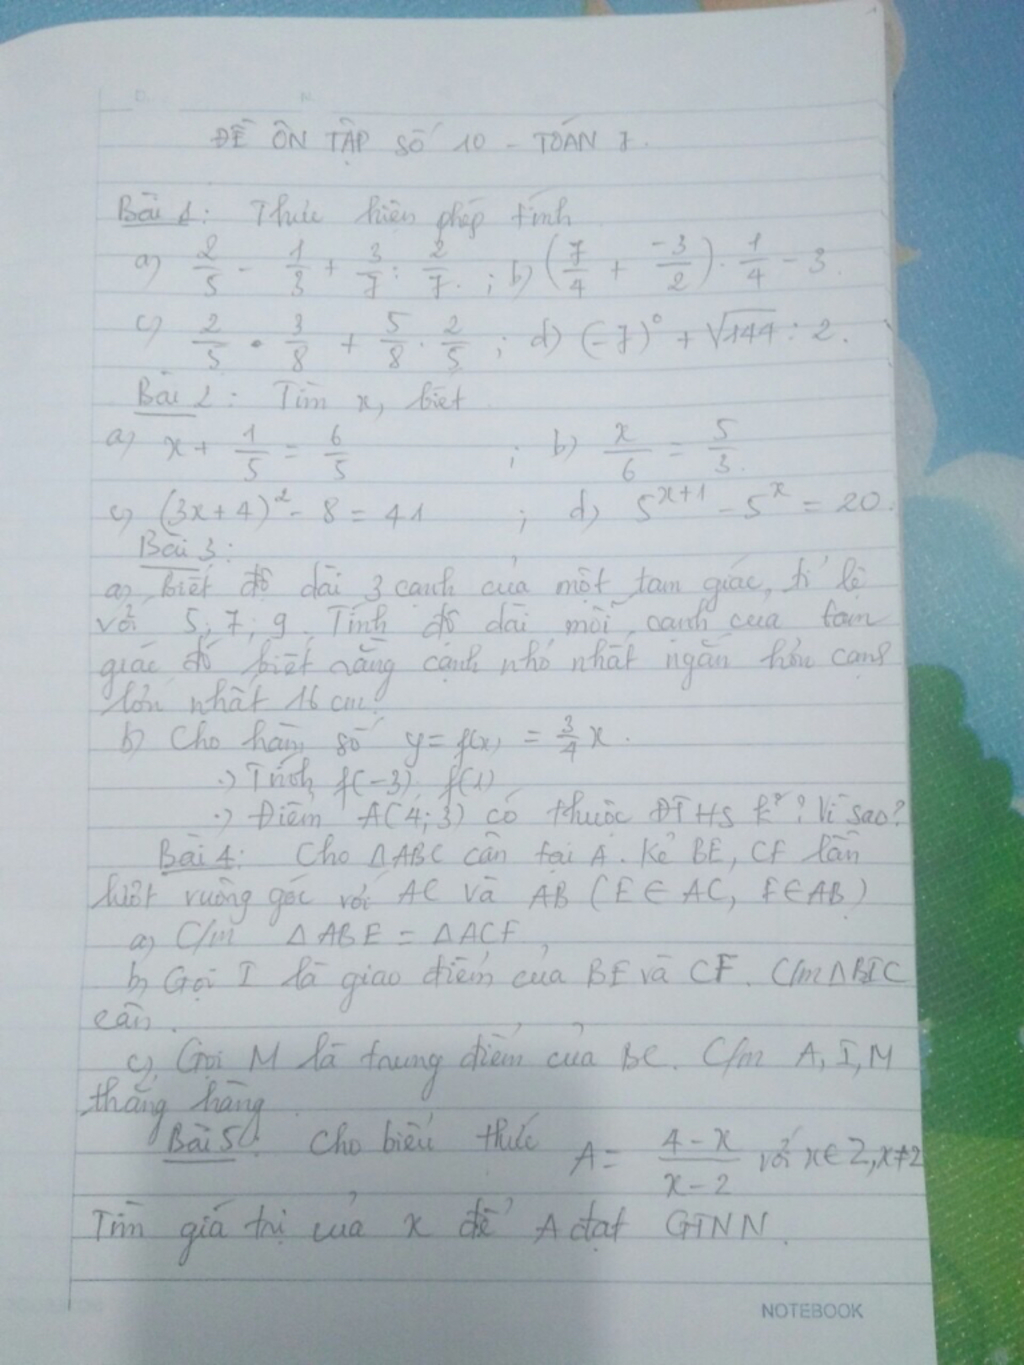 ĐỀ ÔN TẬP SỐ 10 - TOÁN 7.
Bài 1: Thực hiện phép tính
a) 2/5 - 1/3 + 3/7 : 2/7 ; b) (7/4 + -3/2) . 1/4 - 3.
c) 2/5 . 3/8 + 5/8 . 2/5 ; d) (-7)⁰ + √144 : 2.
Bài 2: Tìm x, biết
a) x + 1/5 = 6/5 ; b) x/6 = 5/3.
c) (3x+4)² - 8 = 41 ; d) 5^(x+1) - 5^x = 20.
Bài 3:
a) Biết độ dài 3 cạnh của một tam giác, tỉ lệ
với 5; 7; 9. Tính độ dài mỗi cạnh của tam
giác đó biết rằng cạnh nhỏ nhất ngắn hơn cạnh
lớn nhất 16 cm?
b) Cho hàm số y = f(x) = 3/4 x.
.) Tính f(-3) f(1)
.) Điểm A(4; 3) có thuộc ĐTHS k°? Vì sao?
Bài 4: Cho ΔABC cân tại A. Kẻ BE, CF lần
lượt vuông góc với AC và AB (E ∈ AC, F ∈ AB)
a) C/m ΔABE = ΔACF
b) Gọi I là giao điểm của BE và CF. C/m ΔBIC
cân.
c) Gọi M là trung điểm của BC. C/m A, I, M
thẳng hàng.
Bài 5: Cho biểu thức A = (4-x)/(x-2) với x ∈ Z, x ≠ 2
Tìm giá trị của x để A đạt GTNN.
NOTEBOOK